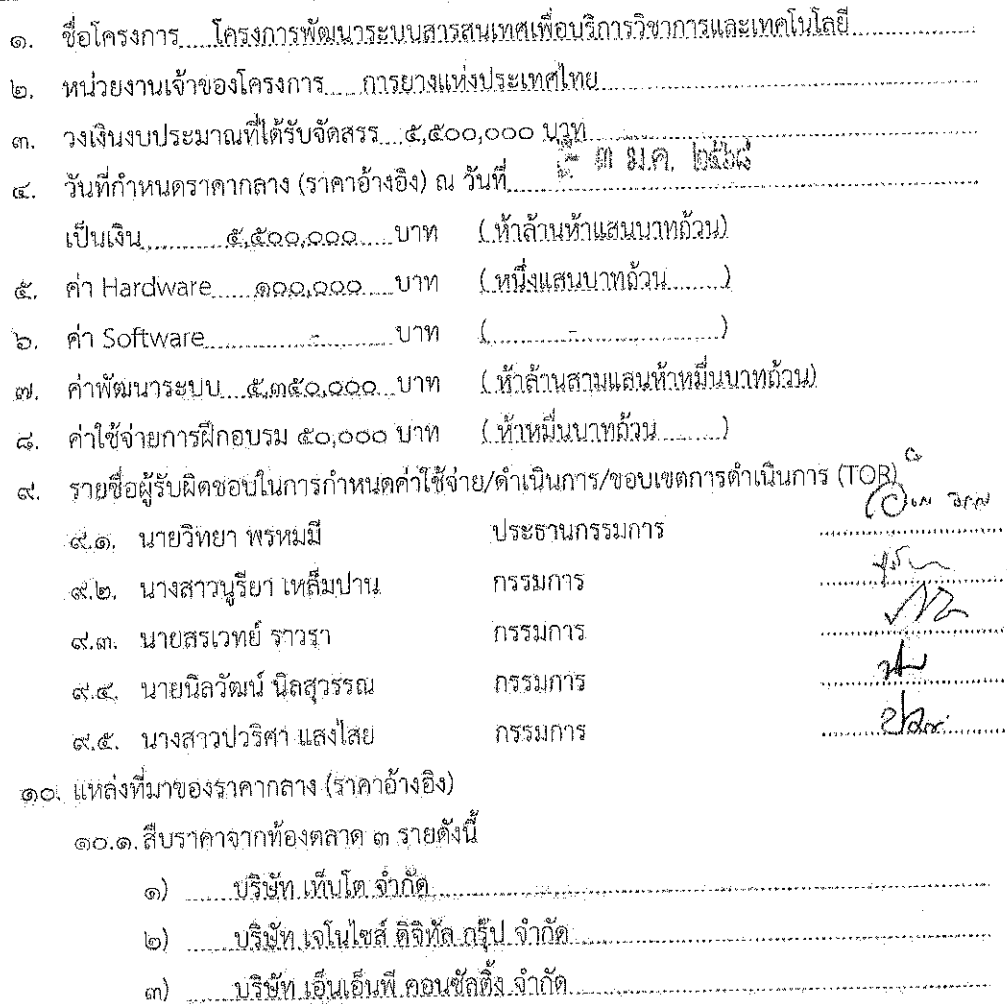 ๑. ชื่อโครงการ โครงการพัฒนาระบบสารสนเทศเพื่อบริการวิชาการและเทคโนโลยี
๒. หน่วยงานเจ้าของโครงการ การยางแห่งประเทศไทย
๓. วงเงินงบประมาณที่ได้รับจัดสรร ๕,๕๐๐,๐๐๐ บาท
๔. วันที่กำหนดราคากลาง (ราคาอ้างอิง) ณ วันที่ ๓ มี.ค. ๒๕๖๘
เป็นเงิน ๕,๕๐๐,๐๐๐ บาท (ห้าล้านห้าแสนบาทถ้วน)
๕. ค่า Hardware ๑๐๐,๐๐๐ บาท (หนึ่งแสนบาทถ้วน)
๖. ค่า Software - บาท ( - )
๗. ค่าพัฒนาระบบ ๕,๓๕๐,๐๐๐ บาท (ห้าล้านสามแสนห้าหมื่นบาทถ้วน)
๘. ค่าใช้จ่ายการฝึกอบรม ๕๐,๐๐๐ บาท (ห้าหมื่นบาทถ้วน)
๙. รายชื่อผู้รับผิดชอบในการกำหนดค่าใช้จ่าย/ดำเนินการ/ขอบเขตการดำเนินการ (TOR)
๙.๑. นายวิทยา พรหมมี ประธานกรรมการ
๙.๒. นางสาวนูรียา เหล็มปาน กรรมการ
๙.๓. นายสรเวทย์ ราวรา กรรมการ
๙.๔. นายนิลวัฒน์ นิลสุวรรณ กรรมการ
๙.๕. นางสาวปวริศา แสงไสย กรรมการ
๑๐. แหล่งที่มาของราคากลาง (ราคาอ้างอิง)
๑๐.๑. สืบราคาจากท้องตลาด ๓ รายดังนี้
๑) บริษัท เท็บโต จำกัด
๒) บริษัท เจโนไซส์ ดิจิทัล กรุ๊ป จำกัด
๓) บริษัท เอ็นเอ็นพี คอนซัลติ้ง จำกัด